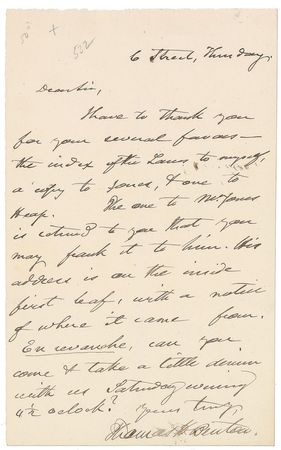 50 x
532
C Street, Thursday.
Dear Sir,
I have to thank you
for your several favors—
the index of the Laws to myself,
a copy to Jones, & one to
Heap. The one to Mr. Jones
is returned to you that you
may frank it to him. His
address is on the inside
first leaf, with a notice
of where it came from.
En revanche, can you
come & take a little dinner
with us Saturday evening
4½ oclock?
Yours truly,
Thomas H. Benton.